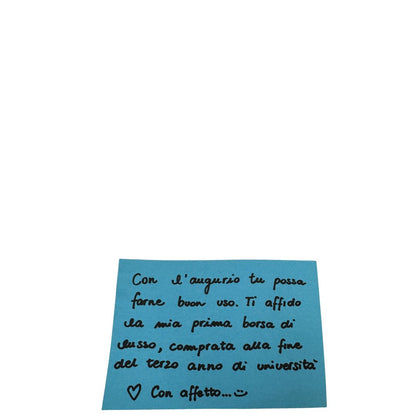 Con l'augurio tu possa
farne buon uso. Ti affido
la mia prima borsa di
lusso, comprata alla fine
del terzo anno di università
♡ Con affetto... :)